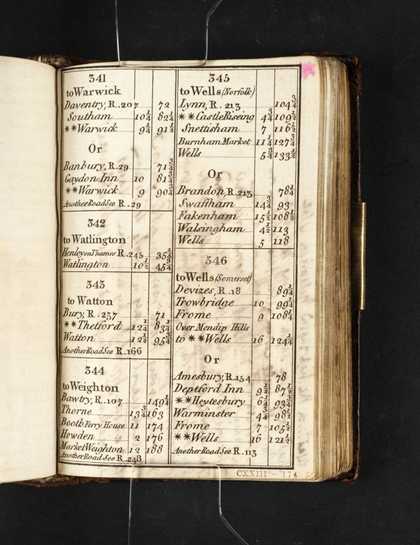 341
to Warwick
Daventry, R. 207 72
Southam 10¼ 82¼
**Warwick 9¼ 91½
Or
Banbury, R. 29 71
Gaydon Inn 10 81
**Warwick 9 90
Another Road See R. 29
342
to Watlington
Henley on Thames R. 245 35
Watlington 10 45
343
to Watton
Bury, R. 237 71
**Thetford 12 83
Watton 12 95
Another Road See R. 166
344
to Weighton
Bawtry, R. 107 149
Thorne 13 163
Booth Ferry House 11 174
Howden 2 176
Market Weighton 12 188
Another Road See R. 248
345
to Wells (Norfolk)
Lynn, R. 213 104
**Castle Riseing 4 109
Snettisham 7 116
Burnham Market 11 127
Wells 5 133
Or
Brandon, R. 213 78
Swaffham 14 93
Fakenham 15 108
Walsingham 4 113
Wells 5 118
346
to Wells (Somerset)
Devizes, R. 18 89
Trowbridge 10 99
Frome 9 108
Over Mendip Hills
to **Wells 16 124
Or
Amesbury, R. 154 78
Deptford Inn 9 87
**Heytesbury 6 93
Warminster 4 98
Frome 7 105
**Wells 16 121
Another Road See R. 113
CXXIII 174